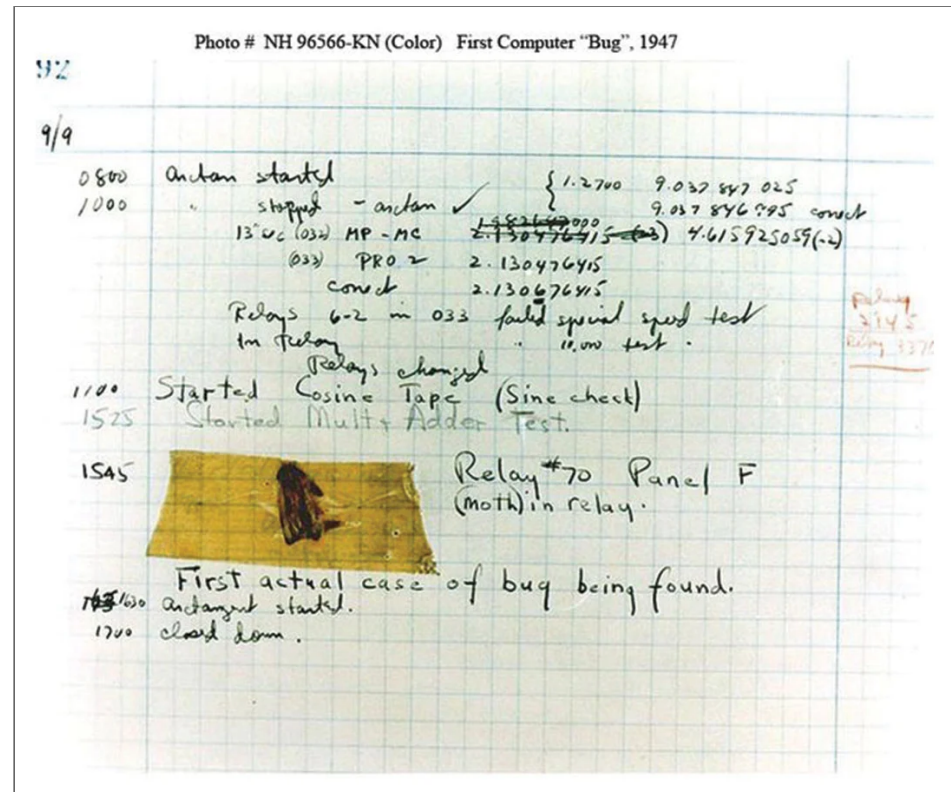 Photo # NH 96566-KN (Color) First Computer “Bug”, 1947
92
9/9
0800 arctan started { 1.2700 9.037 847 025
1000 " stopped - arctan ✓ 9.037 846 995 correct
13"uc (032) MP - MC 2.130476415 (-3) 4.615925059(-2)
(033) PRO 2 2.130476415
correct 2.130676415
Relays 6-2 in 033 failed special speed test
In Relay " 10.000 test .
Relays changed
Relay
2145
Relay 3370
1100 Started Cosine Tape (Sine check)
1525 Started Mult + Adder Test.
1545 Relay #70 Panel F
(moth) in relay.
First actual case of bug being found.
1630 arctangent started.
1700 closed down.